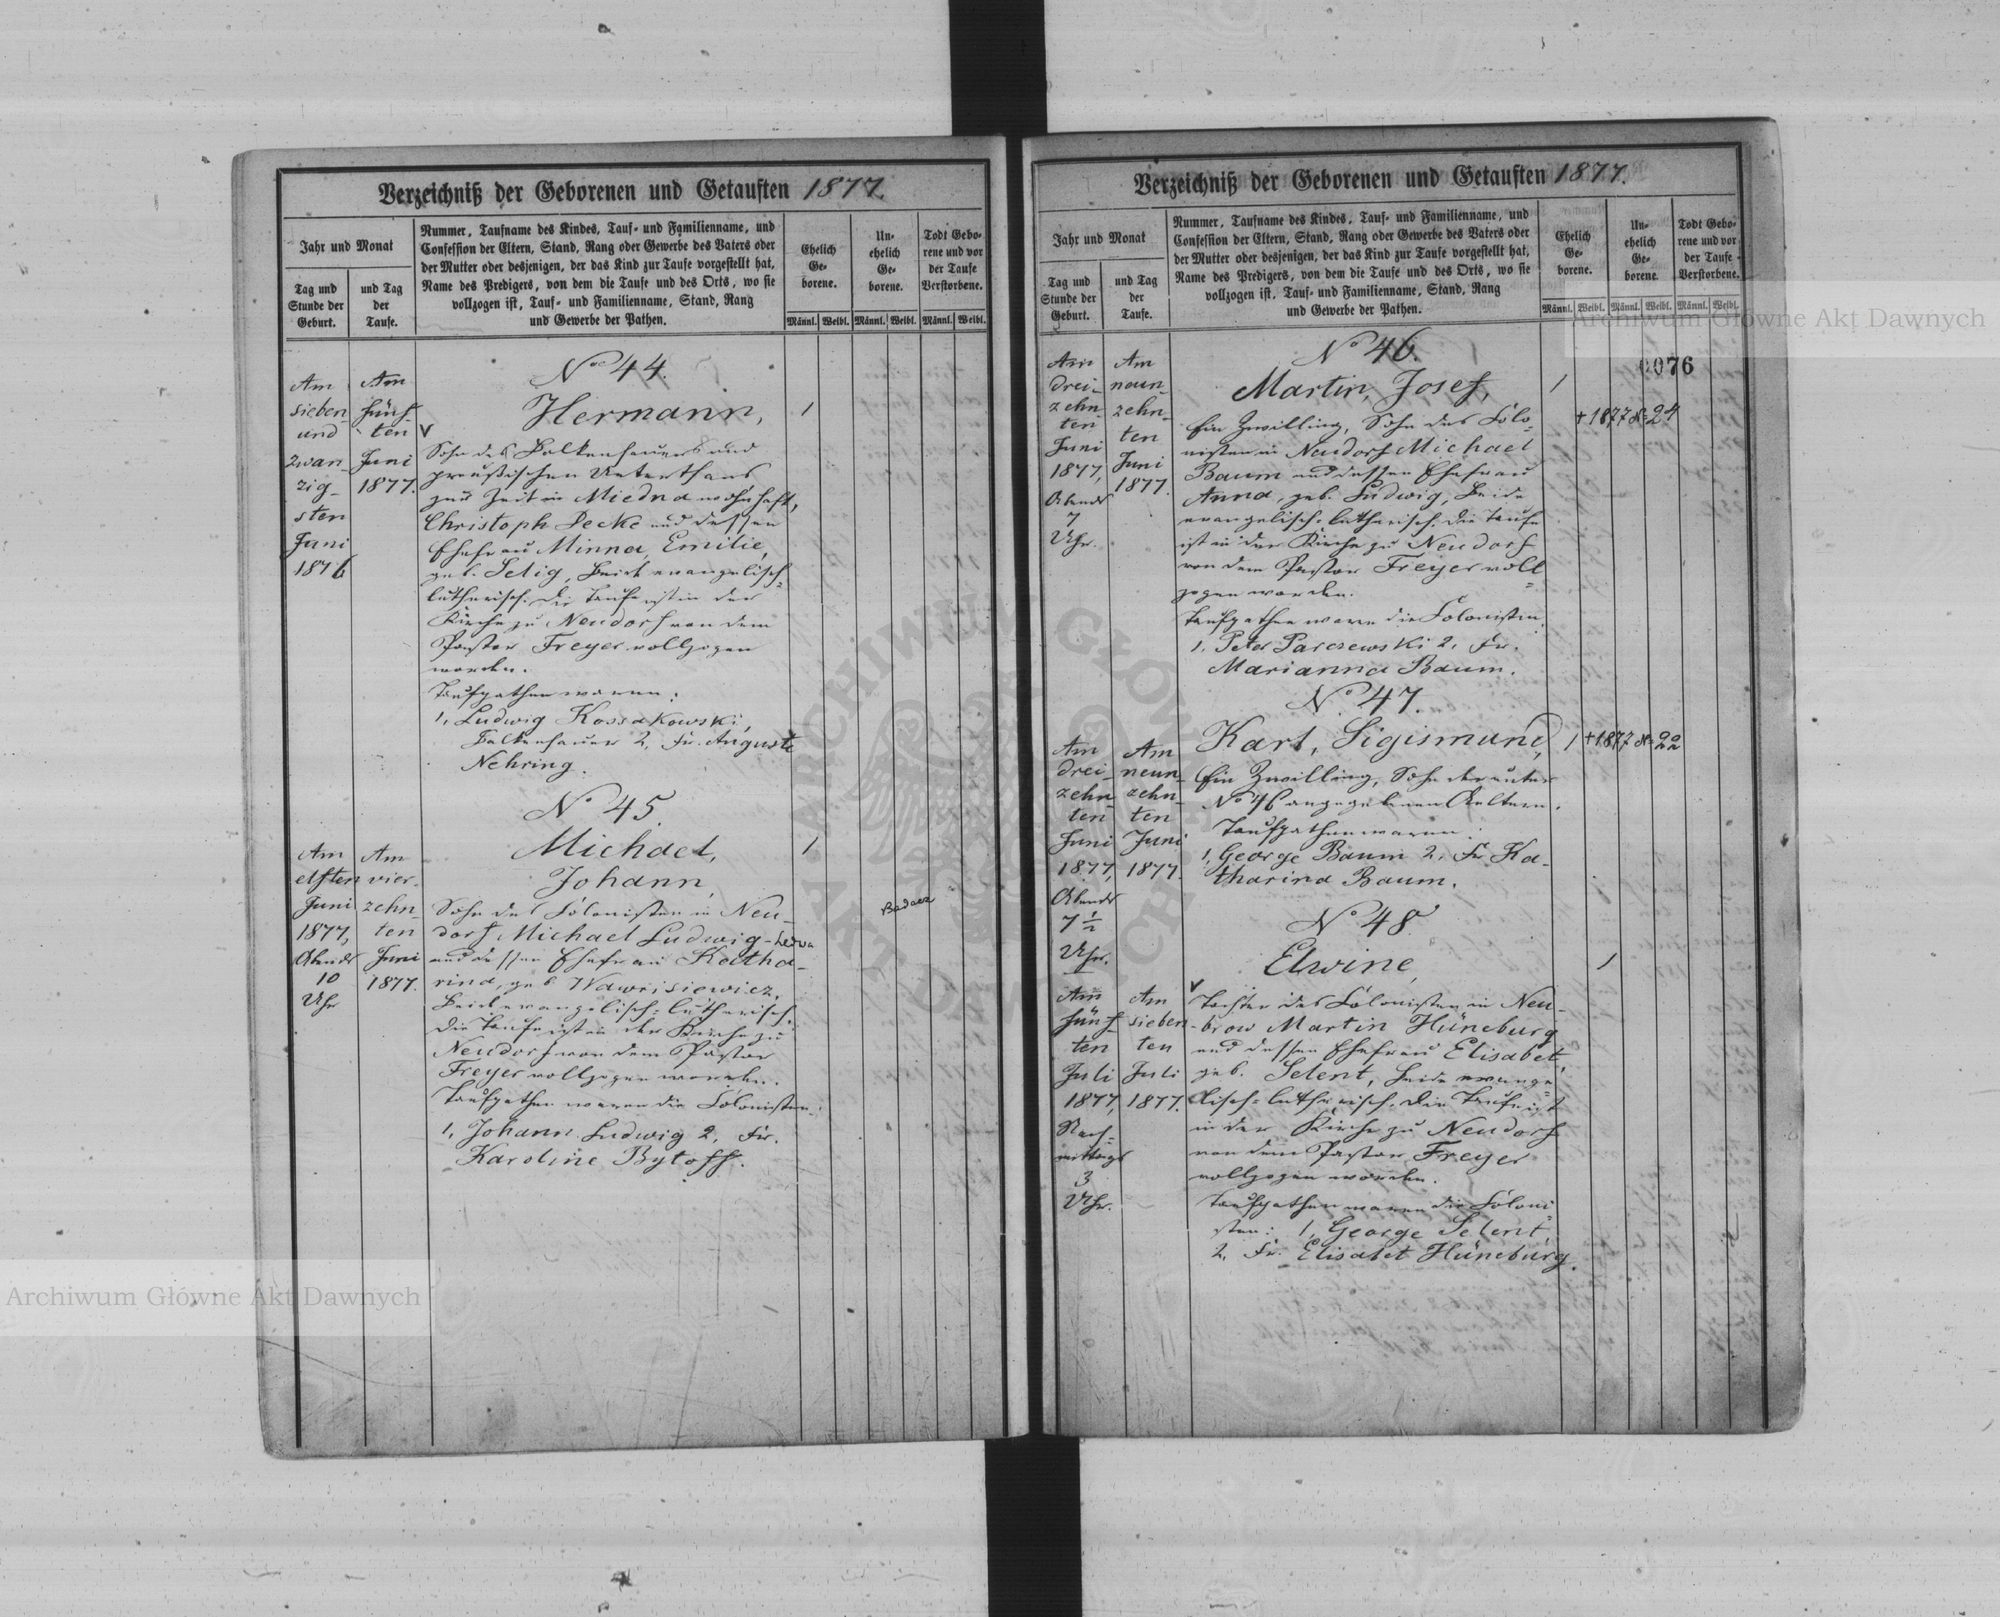 Verzeichniß der Geborenen und Getauften 1877.
Jahr und Monat
Tag und
Stunde der
Geburt.
und Tag
der
Taufe.
Nummer, Taufname des Kindes, Tauf- und Familienname, und
Confession der Eltern, Stand, Rang oder Gewerbe des Vaters oder
der Mutter oder desjenigen, der das Kind zur Taufe vorgestellt hat,
Name des Predigers, von dem die Taufe und des Orts, wo sie
vollzogen ist, Tauf- und Familienname, Stand, Rang
und Gewerbe der Pathen.
Ehelich
Ge-
borene.
Un-
ehelich
Ge-
borene.
Todt Gebo-
rene und vor
der Taufe
Verstorbene.
Männl. Weibl. Männl. Weibl. Männl. Weibl.
Am
sieben-
und
zwan-
zig-
sten
Juni
1876
Am
fünf-
ten
Juni
1877.
No 44.
Hermann,
1
v
Sohn des Balkenhauers und
preußischen Unterthans
zur Zeit in Miedna wohnhaft,
Christoph Decke und dessen
Ehefrau Minna, Emilie,
geb. Selig, Beide evangelisch-
lutherisch. Die Taufe ist in der
Kirche zu Neudorf von dem
Pastor Freyer vollzogen
worden.
Taufpathen waren:
1, Ludwig Kossakowski,
Balkenhauer 2, Fr. Auguste
Nehring.
Am
elften
Juni
1877,
Abends
10
Uhr
Am
vier-
zehn-
ten
Juni
1877.
No 45.
Michael,
Johann,
1
Sohn des Colonisten in Neu-
dorf, Michael Ludwig
und dessen Ehefrau Katha-
rina, geb. Wawrisiewicz,
Beide evangelisch-lutherisch.
Die Taufe ist in der Kirche zu
Neudorf von dem Pastor
Freyer vollzogen worden.
Taufpathen waren die Colonisten:
1, Johann Ludwig 2, Fr.
Karoline Bytoff.
Verzeichniß der Geborenen und Getauften 1877.
Jahr und Monat
Tag und
Stunde der
Geburt.
und Tag
der
Taufe.
Nummer, Taufname des Kindes, Tauf- und Familienname, und
Confession der Eltern, Stand, Rang oder Gewerbe des Vaters oder
der Mutter oder desjenigen, der das Kind zur Taufe vorgestellt hat,
Name des Predigers, von dem die Taufe und des Orts, wo sie
vollzogen ist, Tauf- und Familienname, Stand, Rang
und Gewerbe der Pathen.
Ehelich
Ge-
borene.
Un-
ehelich
Ge-
borene.
Todt Gebo-
rene und vor
der Taufe
Verstorbene.
Männl. Weibl. Männl. Weibl. Männl. Weibl.
0076
Am
drei-
zehn-
ten
Juni
1877,
Abends
7
Uhr.
Am
neun-
zehn-
ten
Juni
1877.
No 46.
Martin, Josef,
1
+ 1877 8-24
Ein Zwilling, Sohn des Colo-
nisten in Neudorf Michael
Baum und dessen Ehefrau
Anna, geb. Ludwig, Beide
evangelisch-lutherisch. Die Taufe
ist in der Kirche zu Neudorf
von dem Pastor Freyer voll-
zogen worden.
Taufpathen waren die Colonisten:
1, Peter Parczewski 2, Fr.
Marianna Baum.
Am
drei-
zehn-
ten
Juni
1877,
Abends
7 1/2
Uhr.
Am
neun-
zehn-
ten
Juni
1877.
No 47.
Karl, Sigismund,
1
+ 1877 8-22
Ein Zwilling, Sohn der unter
No 46 angegebenen Aeltern.
Taufpathen waren:
1, George Baum 2, Fr. Ka-
tharina Baum.
Am
fünf-
ten
Juli
1877,
Nach-
mittags
3
Uhr.
Am
sieben-
ten
Juli
1877.
No 48
Elwine,
1
v
Tochter des Colonisten in Neu-
brow Martin Hüneburg
und dessen Ehefrau Elisabet,
geb. Selent, Beide evange-
lisch-lutherisch. Die Taufe ist
in der Kirche zu Neudorf
von dem Pastor Freyer
vollzogen worden.
Taufpathen waren die Coloni-
sten: 1, George Selent,
2, Fr. Elisabet Hüneburg.
Archiwum Główne Akt Dawnych
Archiwum Główne Akt Dawnych
ARCHIWUM GŁÓWNE AKT DAWNYCH